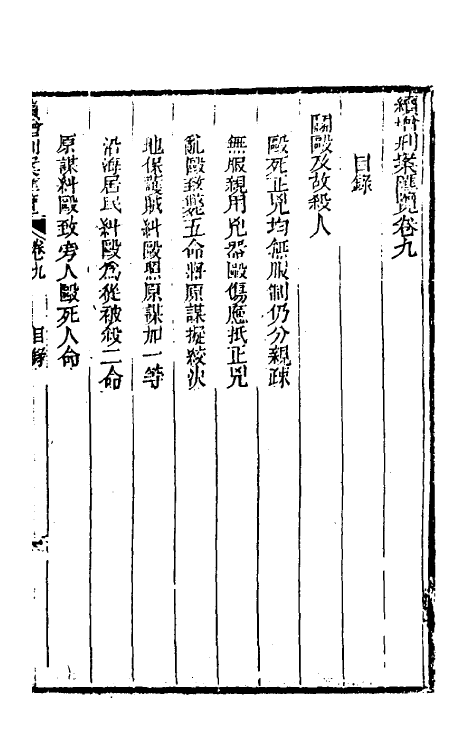 續增刑案匯覽卷九
目錄
鬭毆及故殺人
毆死正兇均無服制仍分親疎
無服親用兇器毆傷應抵正兇
亂毆致斃五命將原謀擬絞決
地保護賊糾毆照原謀加一等
沿海居民糾毆為從被殺二命
原謀糾毆致旁人毆死人命
續增刑案匯覽 卷九 目錄